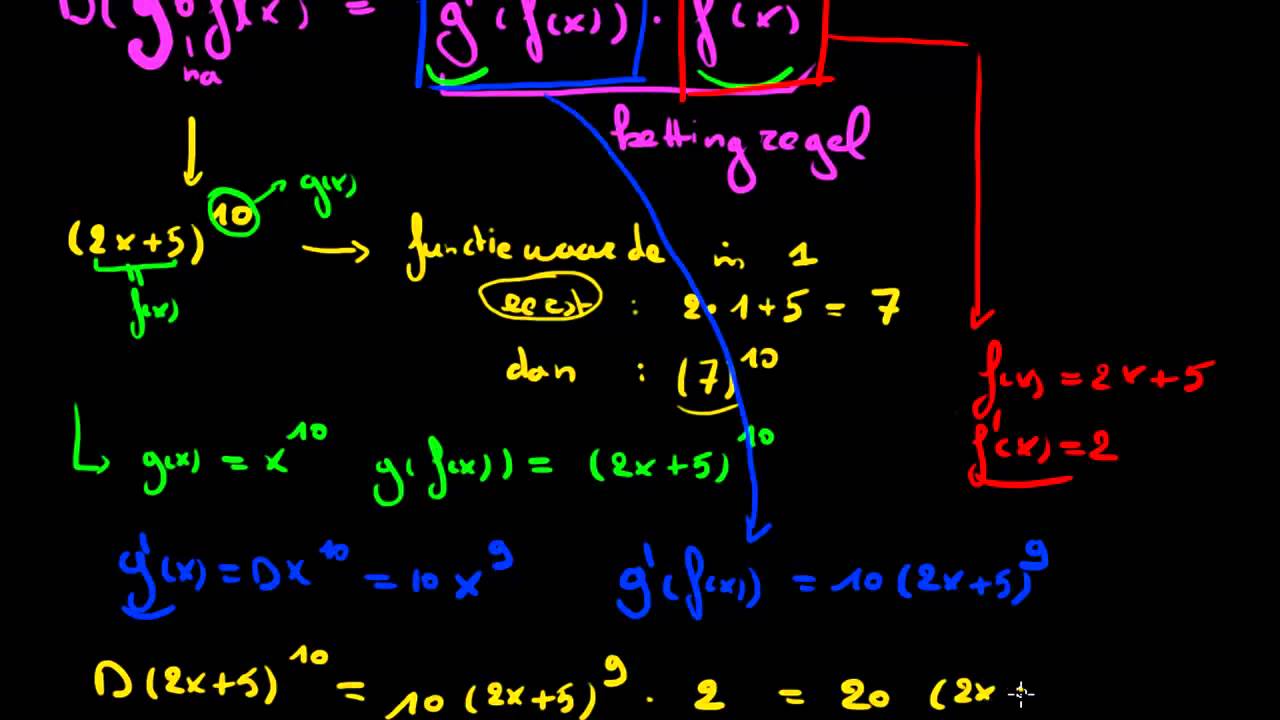 D(g o f)(x) = g'(f(x)) · f'(x)
na
ketting regel
(2x+5)^10 → g(x)
f(x)
→ functiewaarde in 1
eerst : 2·1+5 = 7
dan : (7)^10
f(x) = 2x+5
f'(x) = 2
g(x) = x^10 g(f(x)) = (2x+5)^10
g'(x) = Dx^10 = 10x^9 g'(f(x)) = 10(2x+5)^9
D(2x+5)^10 = 10(2x+5)^9 · 2 = 20 (2x